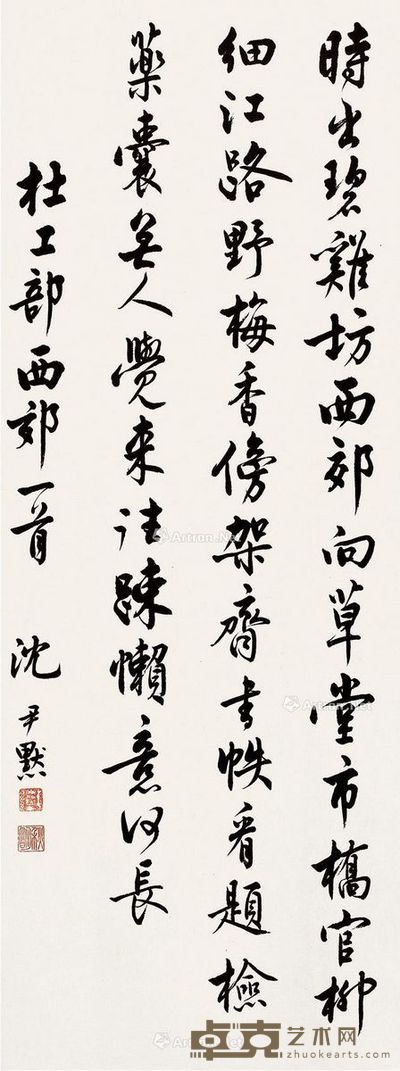 時出碧雞坊西郊向草堂市橋官柳
細江路野梅香傍架齊書帙看題檢
藥囊無人覺来往踈懶意何長
杜工部西郊一首
沈尹默
Artron.Net
卓克艺术网
zhuokearts.com